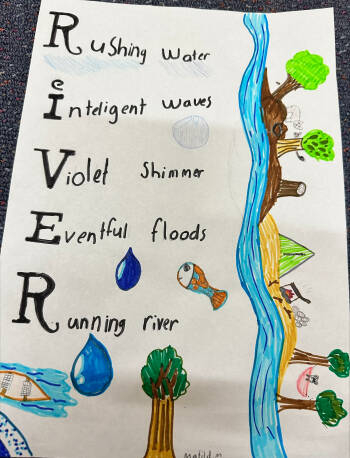 Rushing water
Inteligent waves
Violet shimmer
Eventful floods
Running river